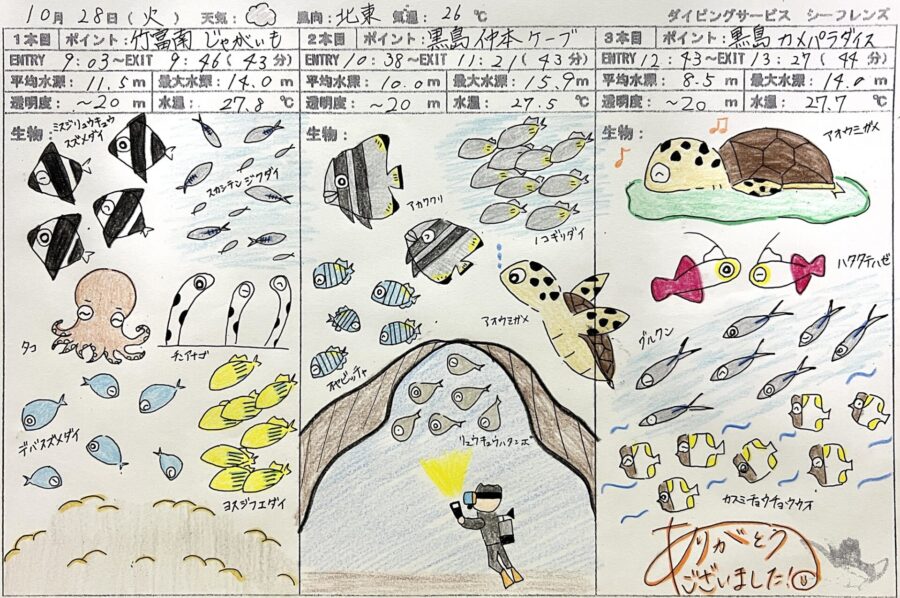 10月 28日(火) 天気: 風向: 北東 気温: 26 ℃ ダイビングサービス シーフレンズ
1本目 ポイント: 竹富南 じゃがいも
ENTRY 9:03〜EXIT 9:46(43分)
平均水深: 11.5m 最大水深: 14.0m
透明度: 〜20 m 水温: 27.8 ℃
生物:
ミスジリュウキュウ
スズメダイ
スカシテンジクダイ
タコ
チンアナゴ
デバスズメダイ
ヨスジフエダイ
2本目 ポイント: 黒島 仲本ケーブ
ENTRY 10:38〜EXIT 11:21(43分)
平均水深: 10.0m 最大水深: 15.9m
透明度: 〜20 m 水温: 27.5 ℃
生物:
アカククリ
ノコギリダイ
アオウミガメ
オヤビッチャ
リュウキュウハタンポ
3本目 ポイント: 黒島 カメパラダイス
ENTRY 12:43〜EXIT 13:27(44分)
平均水深: 8.5m 最大水深: 14.0m
透明度: 〜20 m 水温: 27.7 ℃
生物:
アオウミガメ
ハタタテハゼ
グルクン
カスミチョウチョウウオ
ありがとう
ございました!